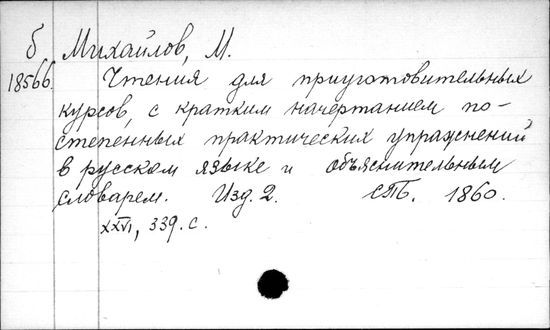 б Михайлов, М.
18566. Чтения для приуготовительных
курсов, с кратким начертанием по-
степенных практических упражнений
в русском языке и объяснительным
словарем. Изд. 2. СПб. 1860.
XXVI, 339. с.